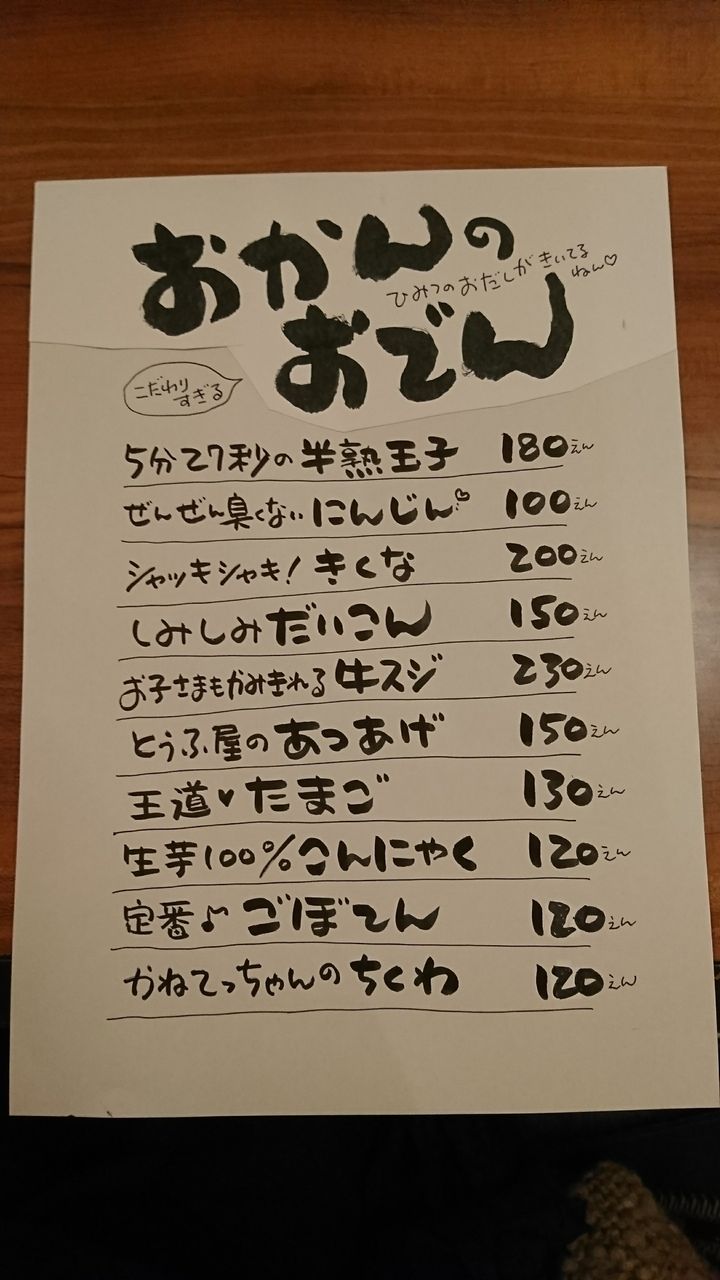 おかんの
ひみつのおだしがきいてる
ねん♡
おでん
こだわり
すぎる
5分27秒の半熟玉子 180えん
ぜんぜん臭くないにんじん♡ 100えん
シャッキシャキ!きくな 200えん
しみしみだいこん 150えん
お子さまもかみきれる牛スジ 230えん
とうふ屋のあつあげ 150えん
王道♥たまご 130えん
生芋100%こんにゃく 120えん
定番♪ごぼてん 120えん
かねてっちゃんのちくわ 120えん